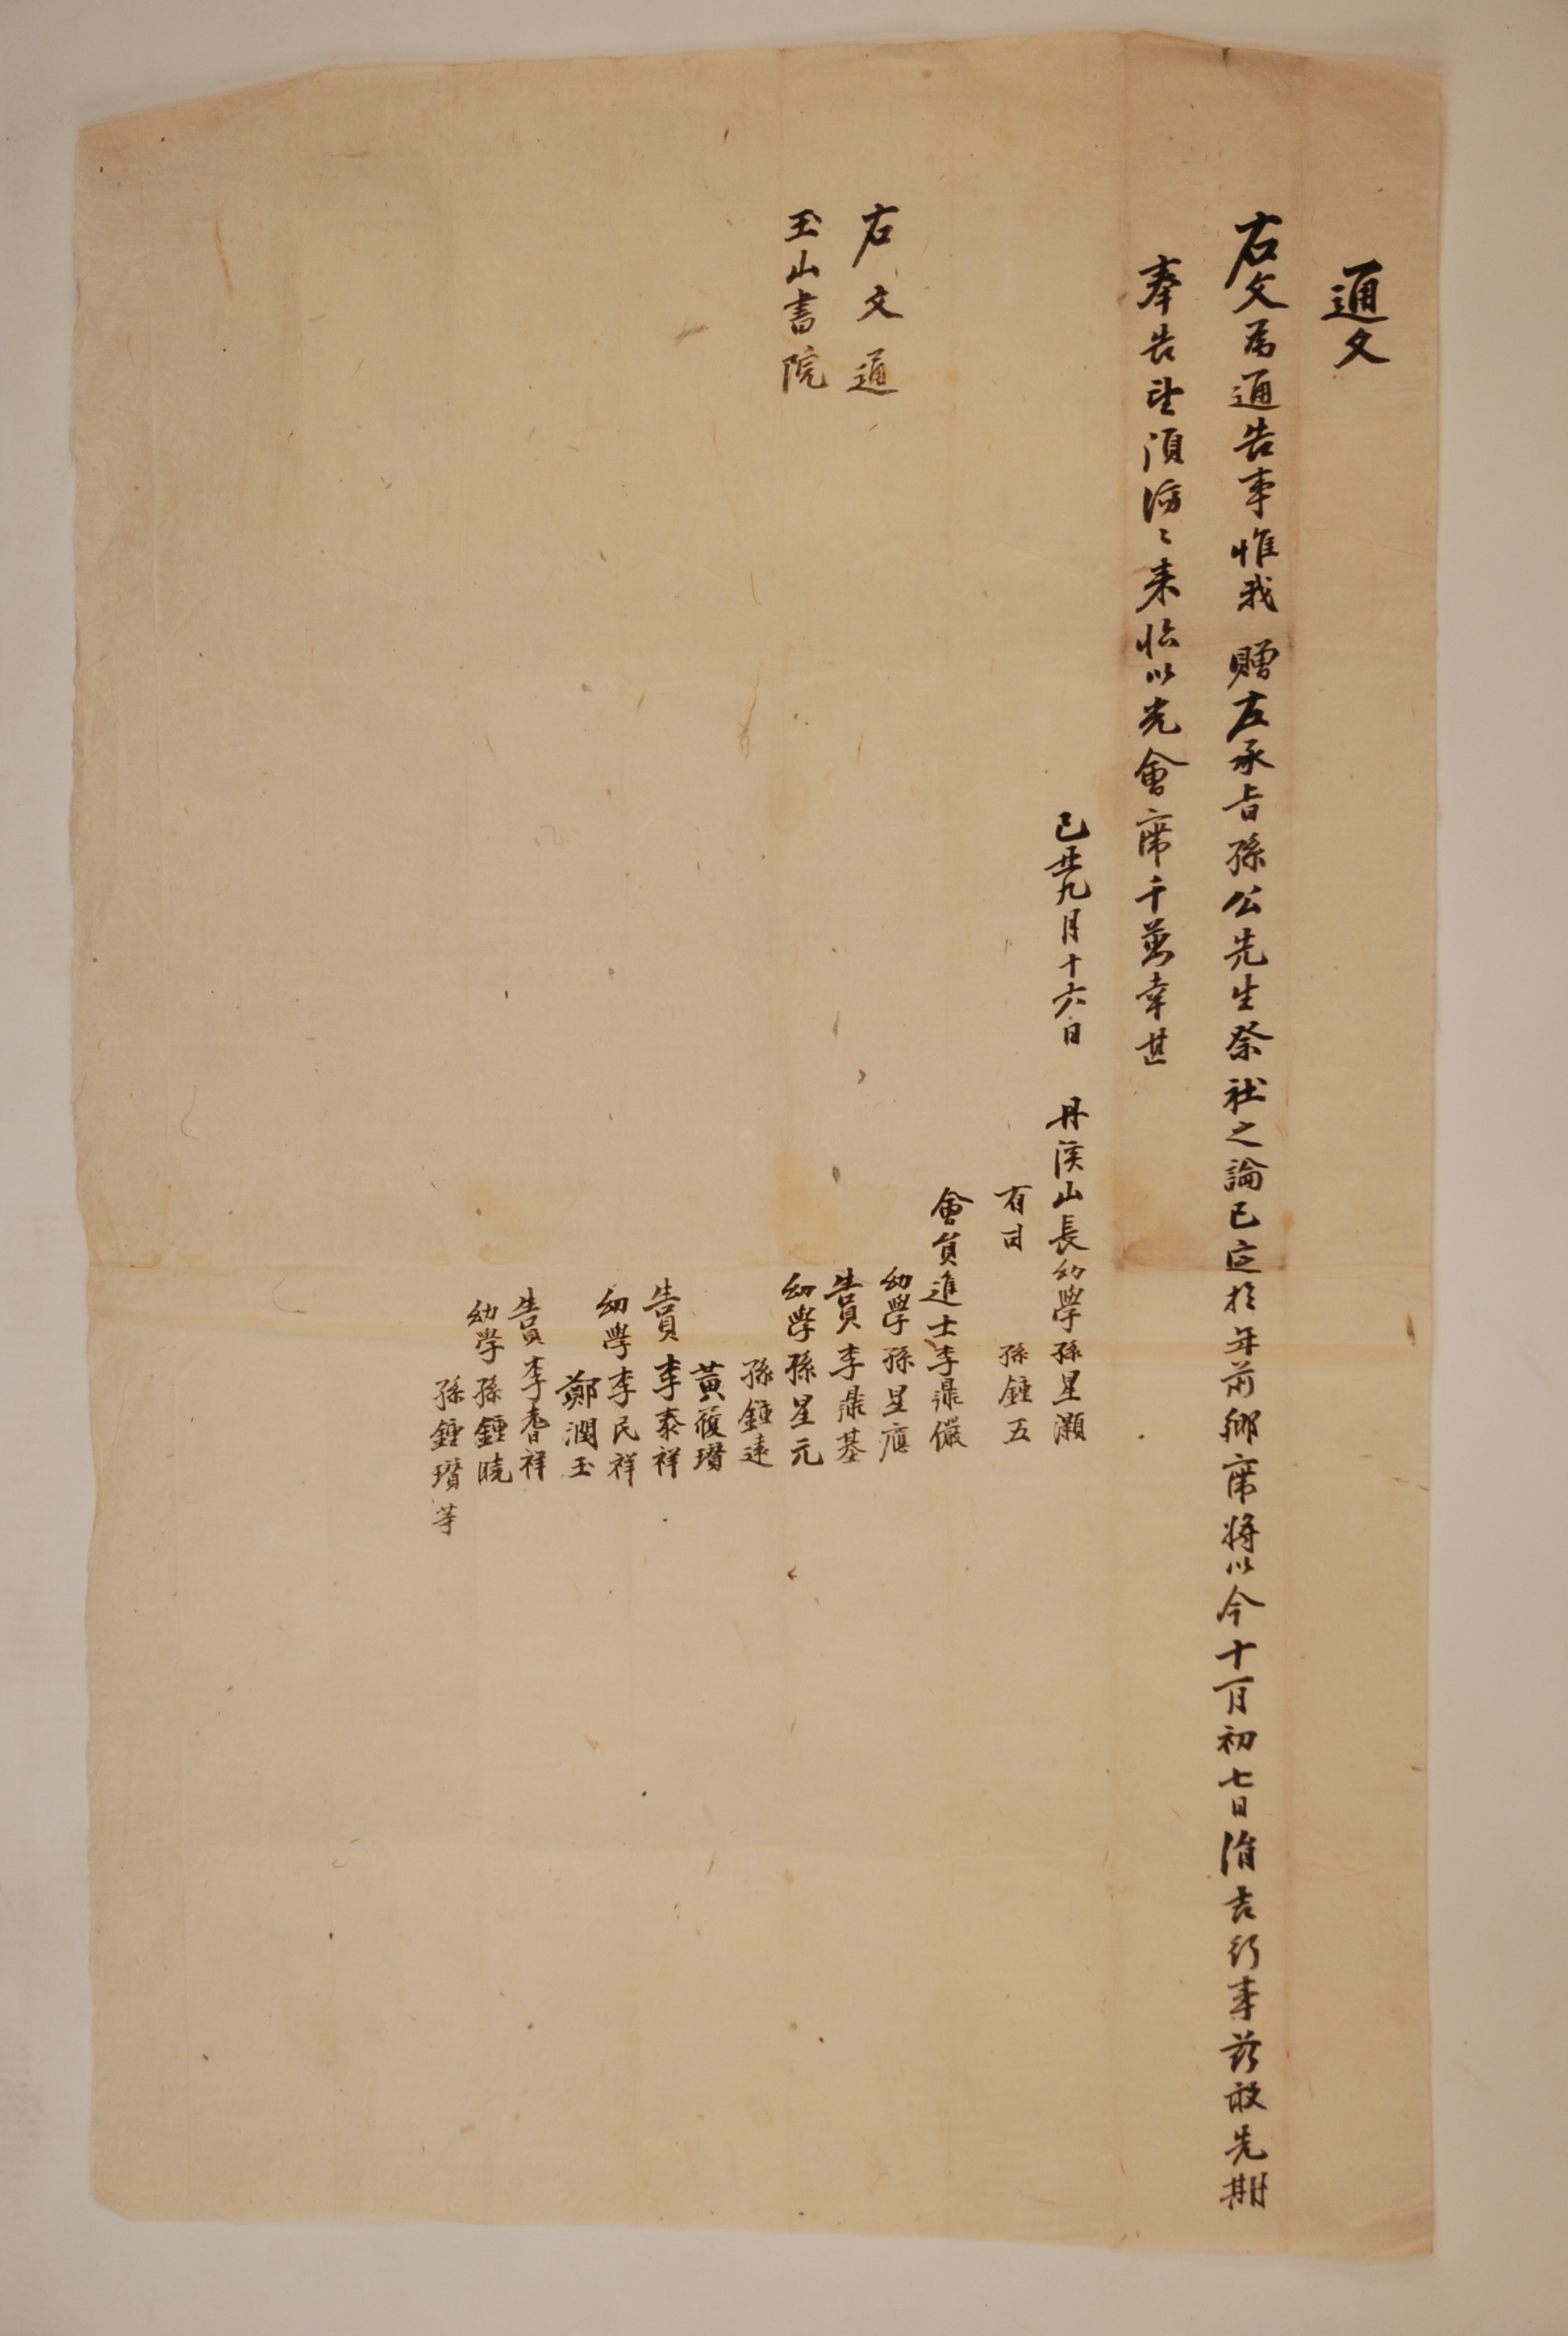 通文
右文為通告事惟我 贈左承旨孫公先生祭社之論已定於年前鄉席將以今十一月初七日涓吉行事玆敢先期
奉告望須濟〻来臨以光會席千萬幸甚
己丑九月十六日 丹溪山長幼學孫星灝
有司 孫鍾五
會員進士李鼎儼
幼學孫星應
生員李鼎基
幼學孫星元
孫鍾遠
黃䪺瓚
生員李泰祥
幼學李民祥
鄭潤玉
生員李耆祥
幼學孫鍾曉
孫鍾瓚等
右文通
玉山書院